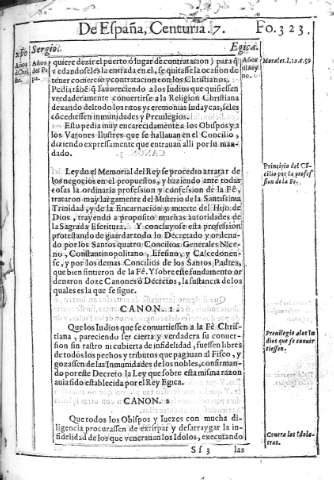 De España, Centuria. 7. Fo. 323.
Sergio. Egica.
quiere dezir el puerto ò lugar de contratacion) para q̃
vedandoseles la entrada en el, se quitasse la ocasion de
tener comercio y contratacion con los Christianos.
Morales. l. 12. c. 59
verdaderamente conuertirse a la Religion Christiana
devando del todo los ritos y ceremonias Iudaycas, seles
cõcediessen inmunidades y Preuilegios.
Esto pedia muy encarecidamente a los Obispos y a
los Varones Ilustres que se hallauan en el Concilio,
diziendo expressamente que entrauan alli por su man
dado.
Leydo el Memorial del Rey se procedio a tratar de
los negocios en el propuestos, y haziendo ante todas
cosas la ordinaria profession y confession de la Fè,
trataron muy largamente del Misterio de la Santissima
Trinidad, y de la Encarnacion y muerte del Hijo de
Dios, trayendo a proposito muchas autoridades de
la Sagrada Escritura. Y concluyose esta profession
protestando de guardar todo lo Decretado y ordena-
do por los Santos quatro Concilios Generales Nice-
no, Constantinopolitano, Efesino, y Calcedonen-
se, y por los demas Concilios de los Santos Padres,
que bien sintieron de la Fè. Y sobre este fundamento or
denaron doze Canones ò Decretos, la sustancia de los
quales es la que se sigue.
Principio del Cõ-
cilio por la profes
sion de la Fè.
CANON. 1.
Que los Iudios que se conuirtiessen a la Fè Chris-
tiana, pareciendo ser cierta y verdadera su conuer-
sion sin rastro ni cubierta de infidelidad, fuessen libres
de todos los pechos y tributos que pagauan al Fisco, y
gozassen de las Inmunidades de los nobles, confirman-
do por este Decreto la Ley que sobre esta misma razon
auia sido establecida por el Rey Egica.
Preuilegio a los Iu
dios que se conuir
tiessen.
CANON. 2
Que todos los Obispos y Iuezes con mucha di-
ligencia procurassen de extirpar y desarraygar la in-
fidelidad de los que venerauan los Idolos, executando
Contra los Idola-
tras.
Sf 3 las